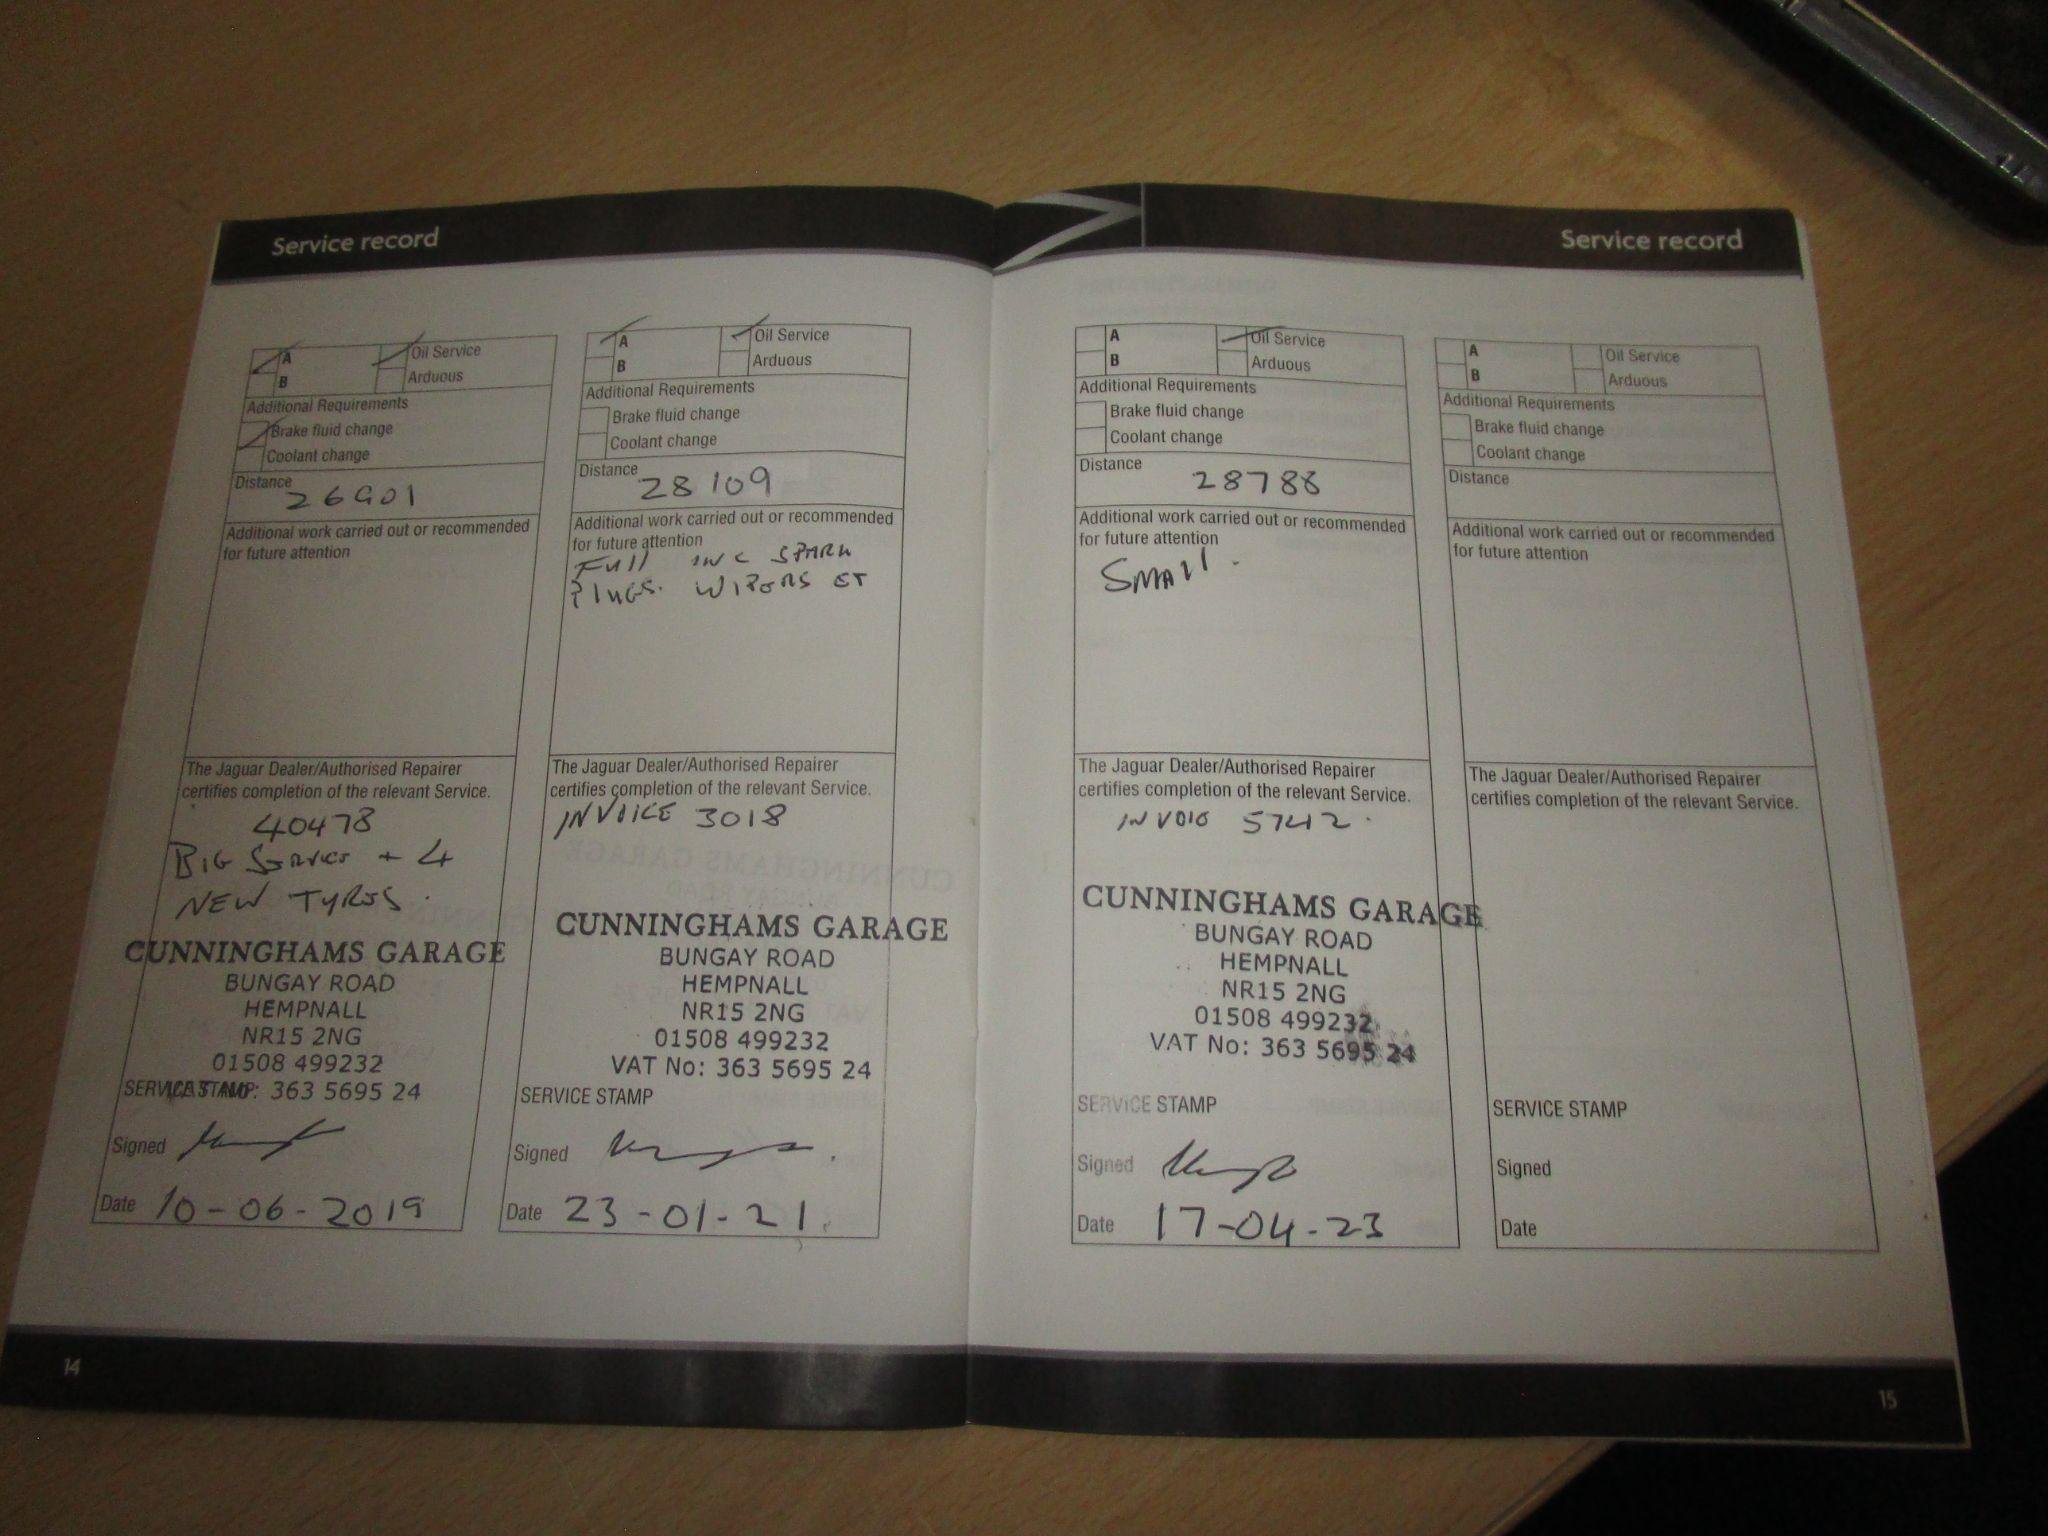 Service record
A
Oil Service
B
Arduous
Additional Requirements
Brake fluid change
Coolant change
Distance
26901
Additional work carried out or recommended
for future attention
The Jaguar Dealer/Authorised Repairer
certifies completion of the relevant Service.
40478
BIG SERVICE + 4
NEW TYRES.
CUNNINGHAMS GARAGE
BUNGAY ROAD
HEMPNALL
NR15 2NG
01508 499232
VAT No: 363 5695 24
SERVICE STAMP
Signed
Date 10-06-2019
A
Oil Service
B
Arduous
Additional Requirements
Brake fluid change
Coolant change
Distance
28109
Additional work carried out or recommended
for future attention
FUll INC SPARK
PlUGS. WIPERS ET
The Jaguar Dealer/Authorised Repairer
certifies completion of the relevant Service.
INVOICE 3018
CUNNINGHAMS GARAGE
BUNGAY ROAD
HEMPNALL
NR15 2NG
01508 499232
VAT No: 363 5695 24
SERVICE STAMP
Signed
Date 23-01-21.
14
Service record
A
Oil Service
B
Arduous
Additional Requirements
Brake fluid change
Coolant change
Distance
28788
Additional work carried out or recommended
for future attention
SMAll.
The Jaguar Dealer/Authorised Repairer
certifies completion of the relevant Service.
CUNNINGHAMS GARAGE
BUNGAY ROAD
HEMPNALL
NR15 2NG
01508 499232
VAT No: 363 5695 24
SERVICE STAMP
Signed
Date 17-04-23
A
Oil Service
B
Arduous
Additional Requirements
Brake fluid change
Coolant change
Distance
Additional work carried out or recommended
for future attention
The Jaguar Dealer/Authorised Repairer
certifies completion of the relevant Service.
SERVICE STAMP
Signed
Date
15